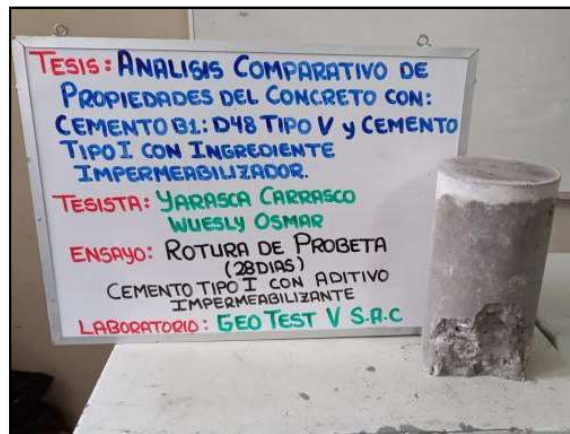 TESIS: ANALISIS COMPARATIVO DE
PROPIEDADES DEL CONCRETO CON:
CEMENTO B1: D48 TIPO V y CEMENTO
TIPO I CON INGREDIENTE
IMPERMEABILIZADOR.
TESISTA: YARASCA CARRASCO
WUESLY OSMAR
ENSAYO: ROTURA DE PROBETA
(28 DIAS)
CEMENTO TIPO I CON ADITIVO
IMPERMEABILIZANTE
LABORATORIO: GEO TEST V S.A.C